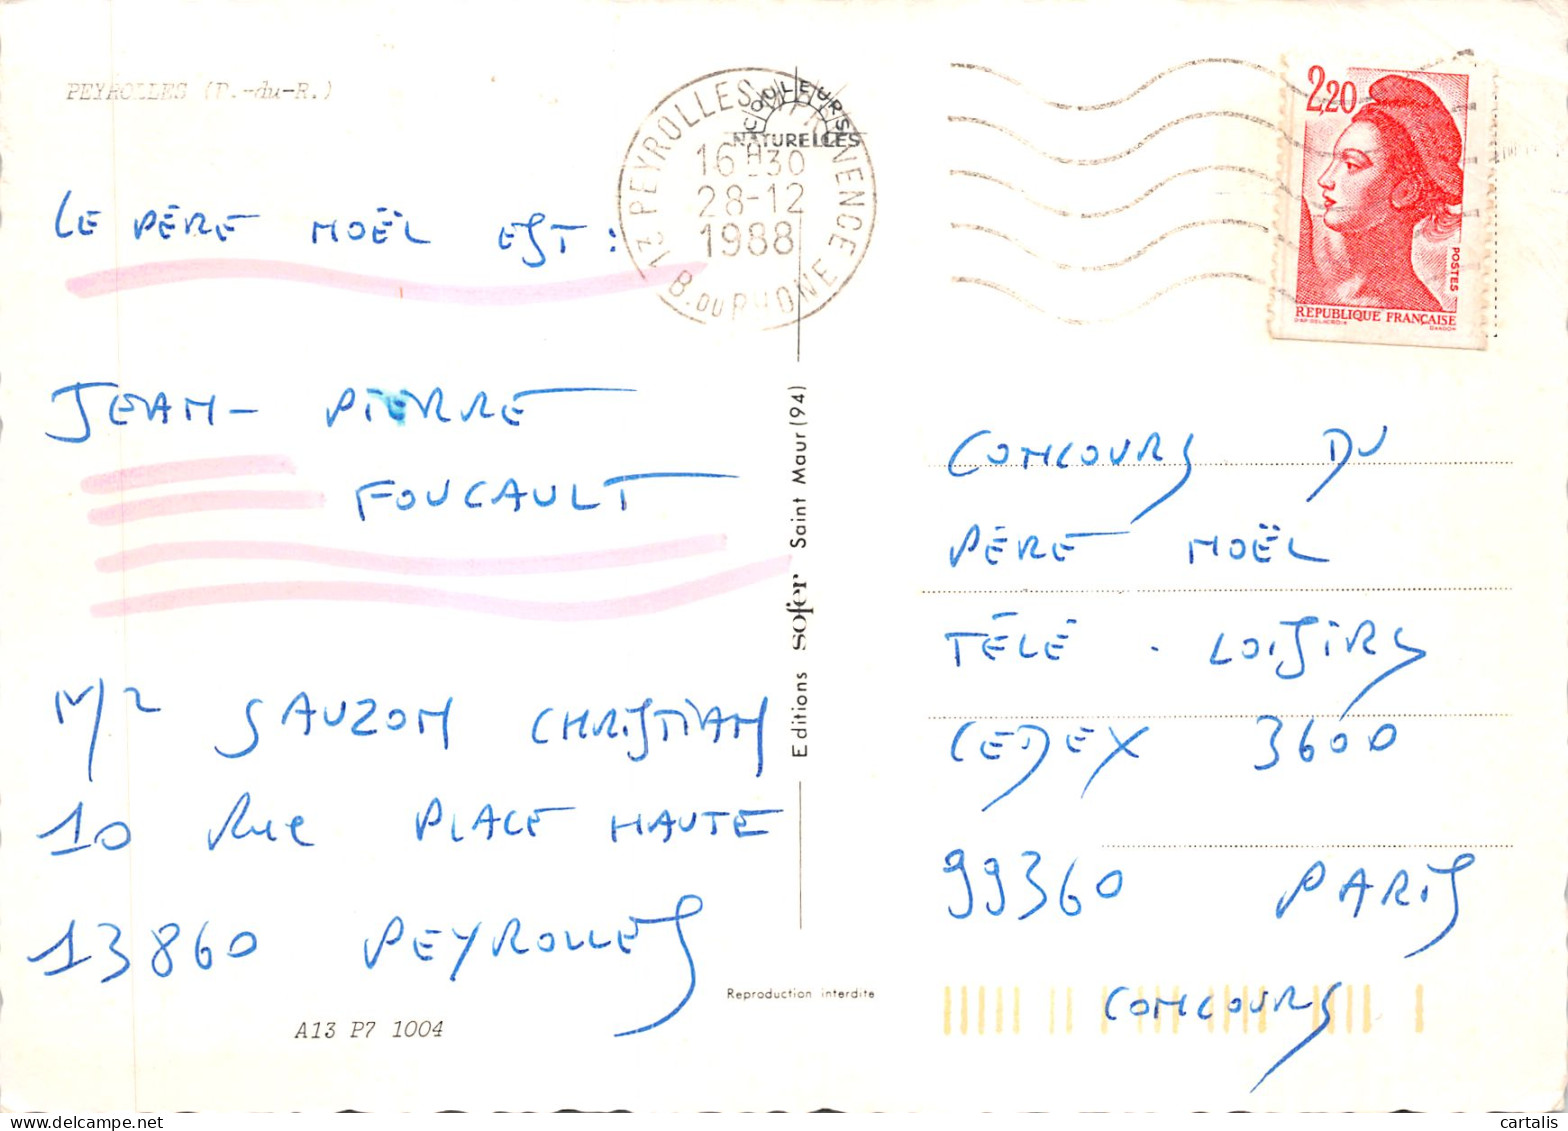 PEYROLLES (P.-du-R.)
LE PÈRE NOËL EST :
JEAN - PIERRE
FOUCAULT
M/R SAUZON CHRISTIAN
10 Rue PLACE HAUTE
13860 PEYROLLES
A13 P7 1004
COULEURS
NATURELLES
13 PEYROLLES EN PROVENCE
16H30
28-12
1988
B. DU RHONE
Editions sofer Saint Maur (94)
Reproduction interdite
2,20
POSTES
REPUBLIQUE FRANÇAISE
D'AP. DELACROIX GANDON
CONCOURS DU
PÈRE NOËL
TÉLÉ - LOISIRS
CEDEX 3600
99360 PARIS
CONCOURS
cartalis